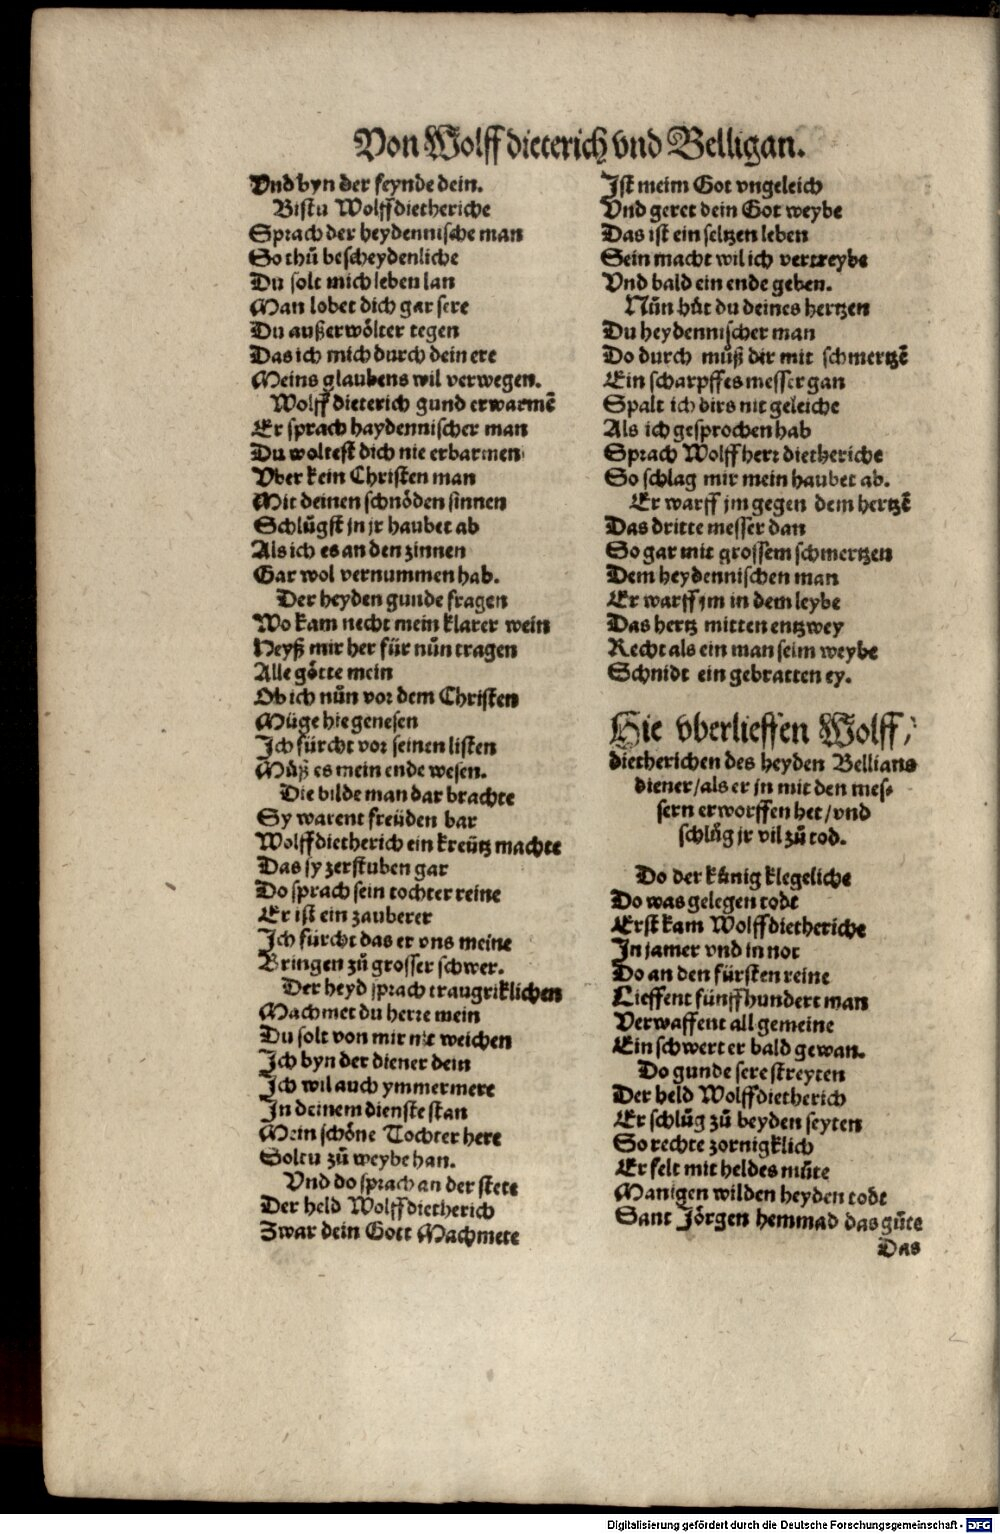 Von Wolffdieterich vnd Belligan.
Vnd byn der feynde dein.
Bistu Wolffdietheriche
Sprach der heydennische man
So thů bescheydenliche
Du solt mich leben lan
Man lobet dich gar sere
Du außerwölter tegen
Das ich mich durch dein ere
Meins glaubens wil verwegen.
Wolff dieterich gund erwarmē
Er sprach haydennischer man
Du woltest dich nie erbarmen
Vber kein Christen man
Mit deinen schnöden sinnen
Schlůgst jn jr haubet ab
Als ich es an den zinnen
Gar wol vernummen hab.
Der heyden gunde fragen
Wo kam necht mein klarer wein
Heyß mir her für nůn tragen
Alle götte mein
Ob ich nůn vor dem Christen
Müge hie genesen
Ich fürcht vor seinen listen
Můß es mein ende wesen.
Die bilde man dar brachte
Sy warent freüden bar
Wolffdietherich ein kreütz machte
Das sy zerstuben gar
Do sprach sein tochter reine
Er ist ein zauberer
Ich fürcht das er vns meine
Bringen zů grosser schwer.
Der heyd sprach traugriklichen
Machmet du herre mein
Du solt von mir nit weichen
Ich byn der diener dein
Ich wil auch ymmermere
In deinem dienste stan
Mein schöne Tochter here
Soltu zů weybe han.
Vnd do sprach an der stete
Der held Wolffdietherich
Zwar dein Gott Machmete
Ist meim Got vngeleich
Vnd geret dein Got weybe
Das ist ein seltzen leben
Sein macht wil ich vertreybe
Vnd bald ein ende geben.
Nůn hůt du deines hertzen
Du heydennischer man
Do durch můß dir mit schmertzē
Ein scharpffes messer gan
Spalt ich dirs nit geleiche
Als ich gesprochen hab
Sprach Wolff herr dietheriche
So schlag mir mein haubet ab.
Er warff jm gegen dem hertzē
Das dritte messer dan
So gar mit grossem schmertzen
Dem heydennischen man
Er warff jm in dem leybe
Das hertz mitten entzwey
Recht als ein man seim weybe
Schnidt ein gebratten ey.
Hie vberlieffen Wolff/
dietherichen des heyden Bellians
diener/als er jn mit den mes-
sern erworffen het/vnd
schlůg jr vil zů tod.
Do der künig klegeliche
Do was gelegen todt
Erst kam Wolffdietheriche
In jamer vnd in not
Do an den fürsten reine
Lieffent fünffhundert man
Verwaffent all gemeine
Ein schwert er bald gewan.
Do gunde sere streyten
Der held Wolffdietherich
Er schlůg zů beyden seyten
So rechte zornigklich
Er felt mit heldes můte
Manigen wilden heyden todt
Sant Jörgen hemmad das gůte
Das
Digitalisierung gefördert durch die Deutsche Forschungsgemeinschaft - DFG